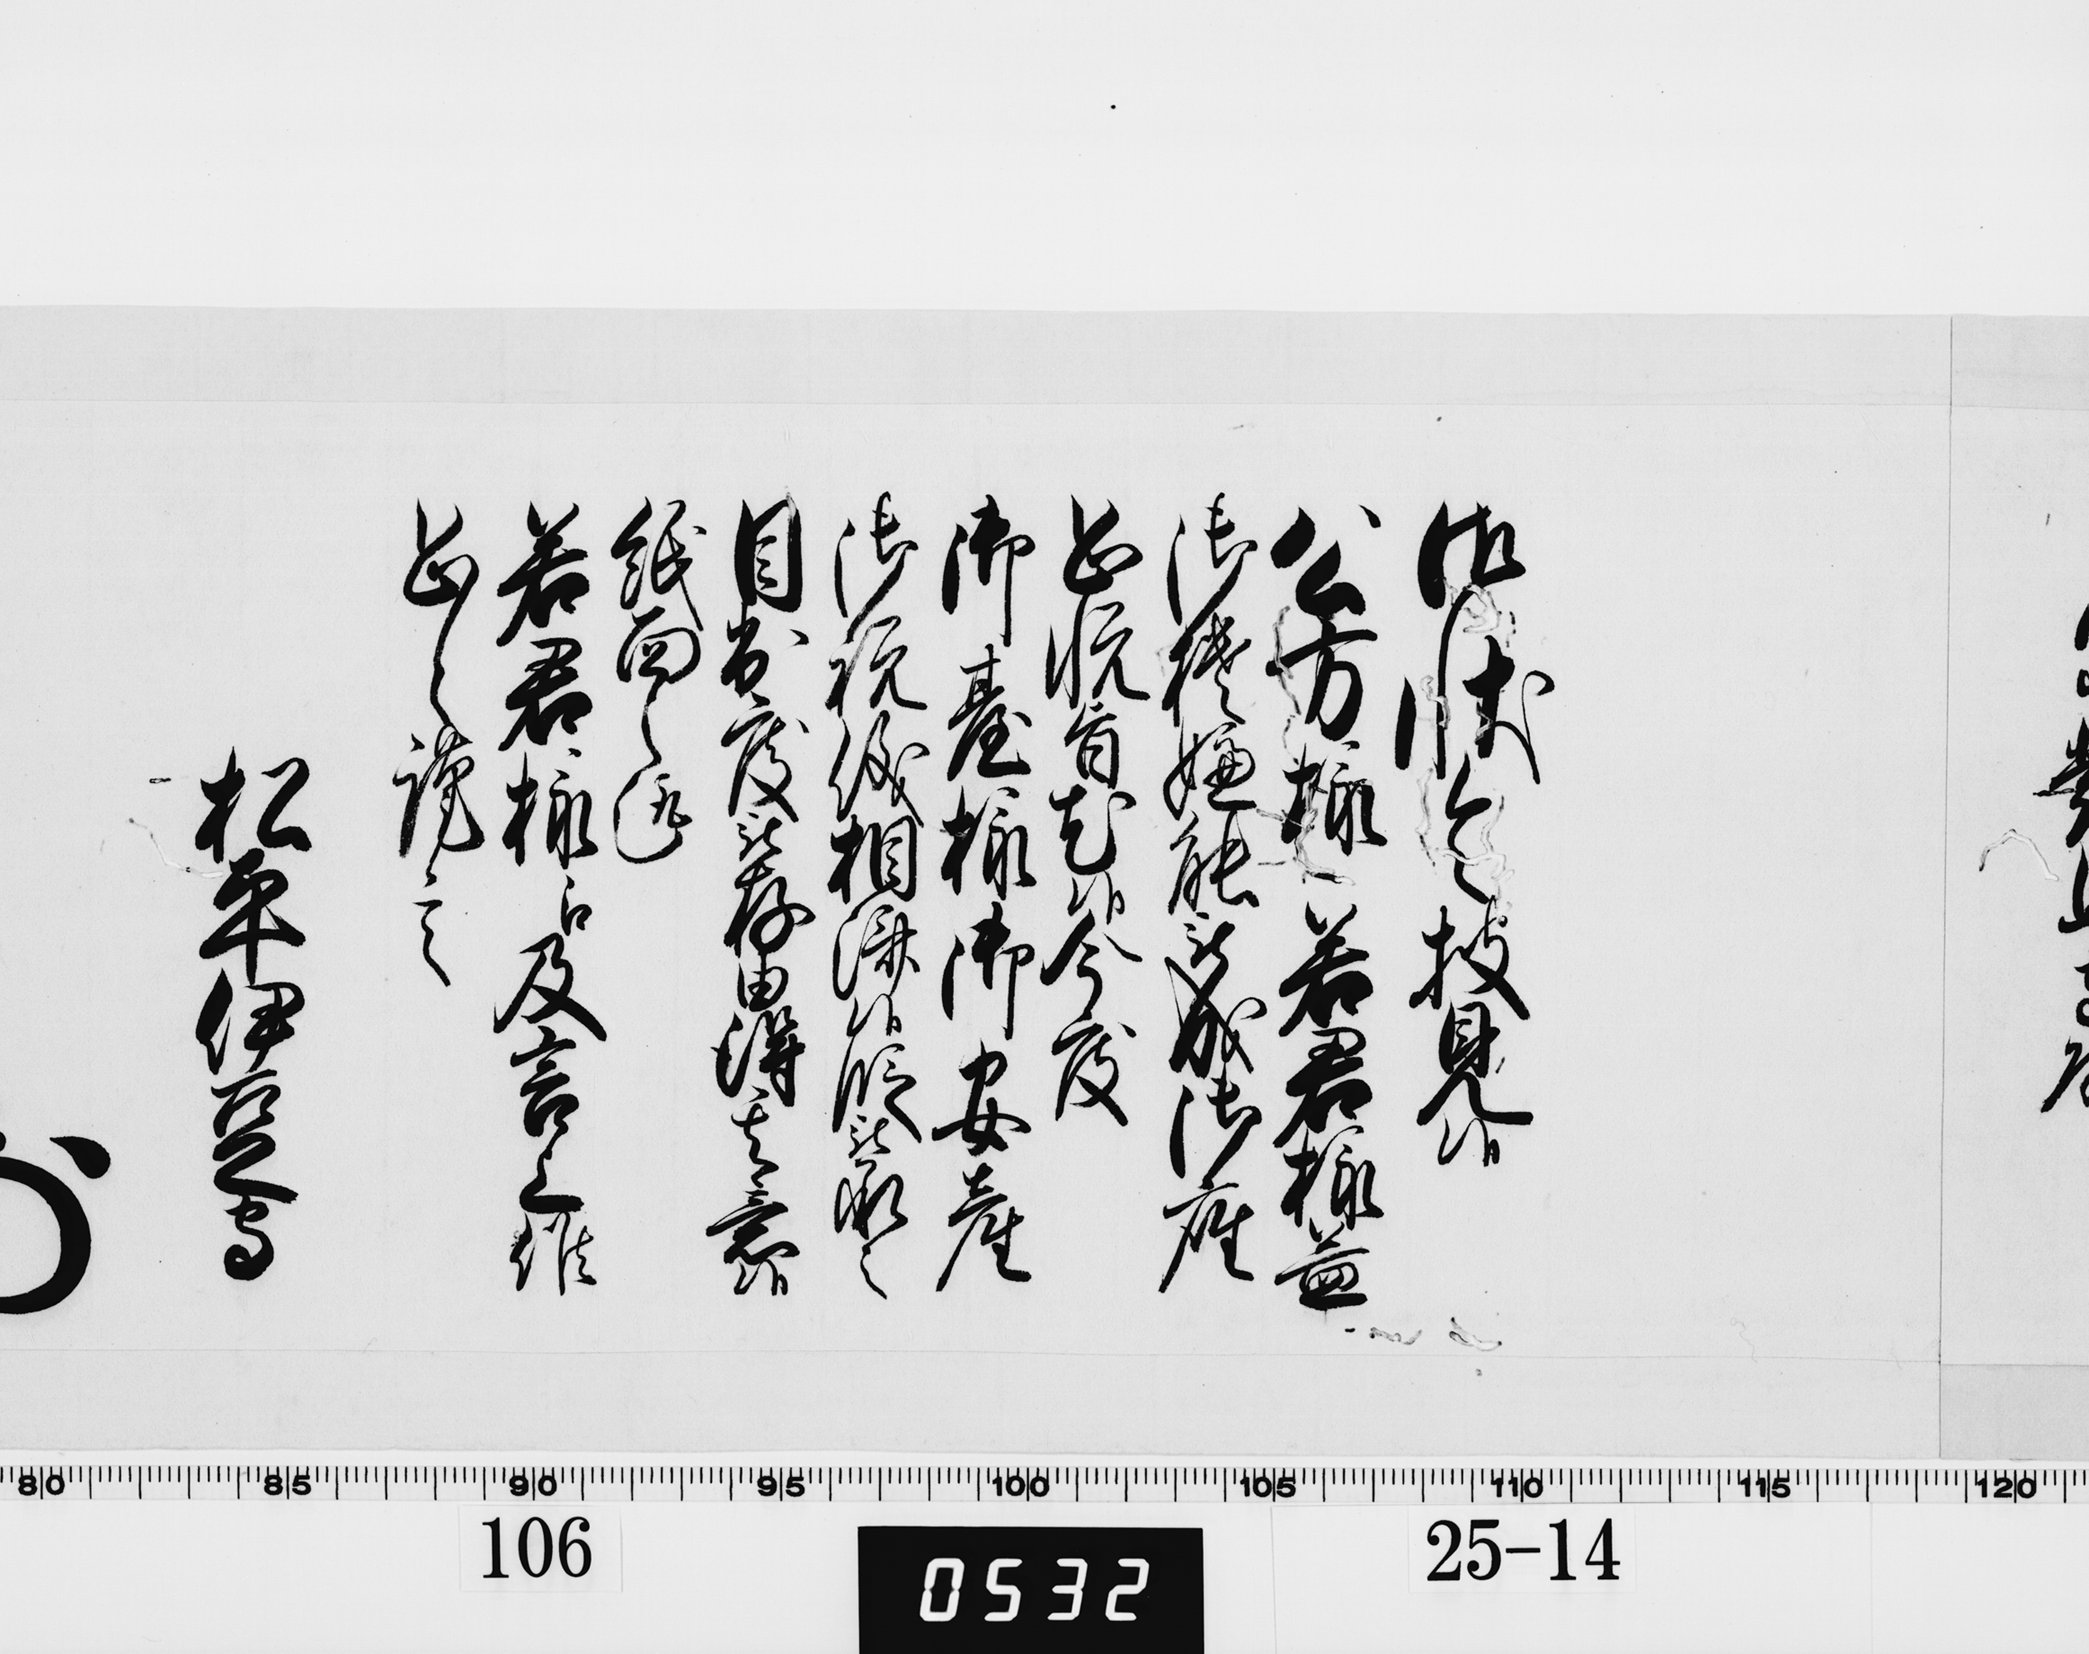 御状令披見候
公方様若君様益
御機嫌能被成御座
恐悦旨尤候今度
御臺様御安産
御祝儀相済候段被承之
目出度被存由得其意候
紙面之通
若君様江及言上候
恐々謹言
松平伊豆守
80 85 90 95 100 105 110 115 120
106
0532
25-14